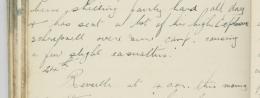 shelling fairly hard all day
& has sent a lot of his high explosive
schrapnell over our camp causing
a few slight casualties.
24th
Reveille at 4 a.m. this morning